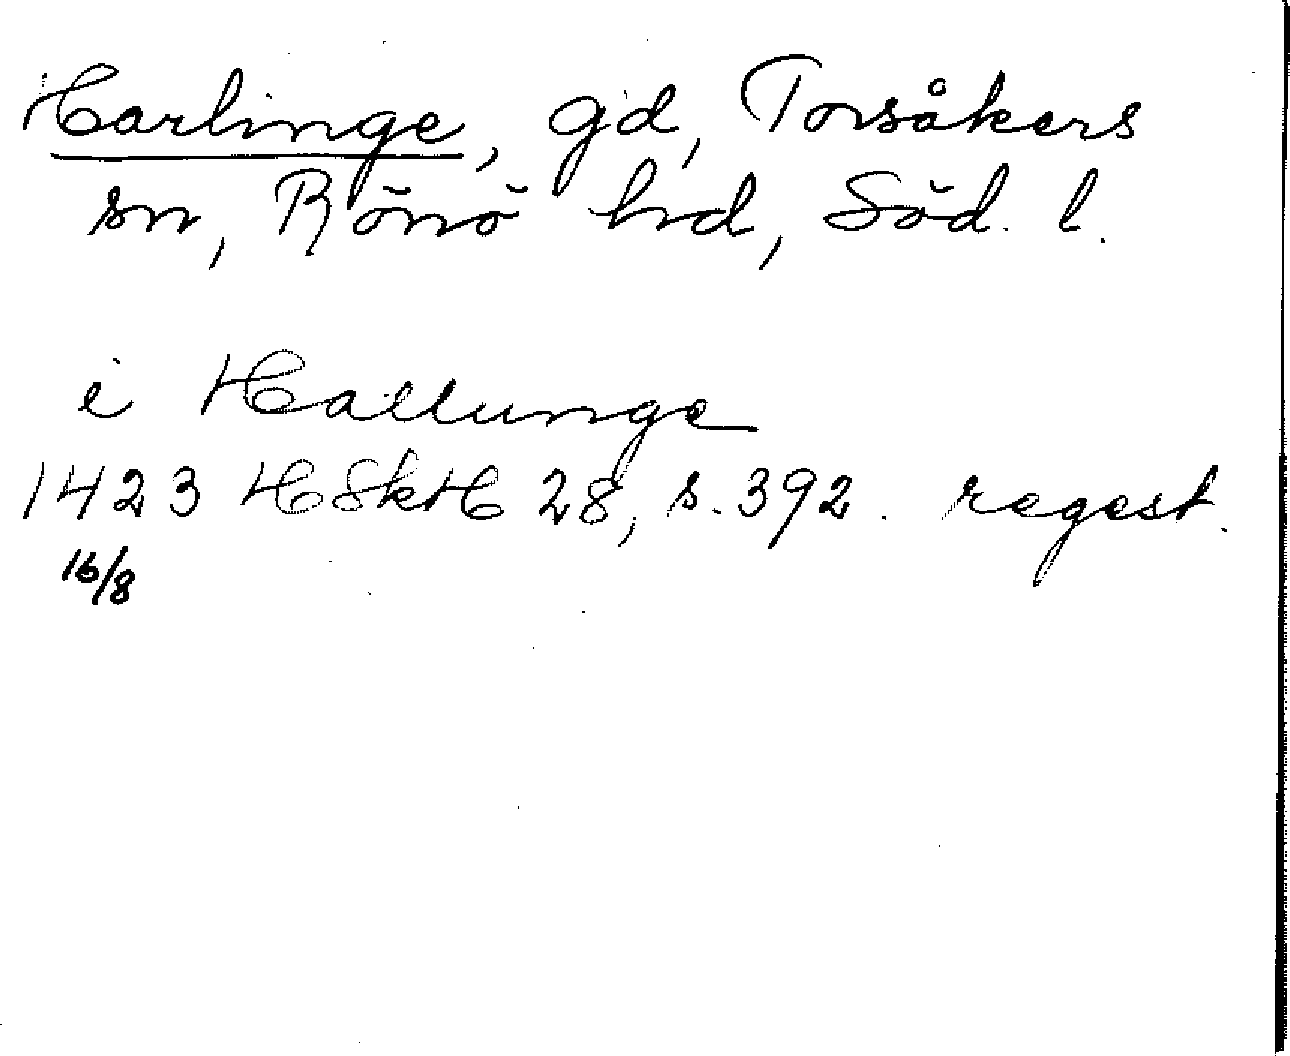 Harlinge, gd, Torsåkers
sn, Rönö hd, Söd. l.
i Hallunge
1423 HSkH 28, s. 392. regest.
16/8